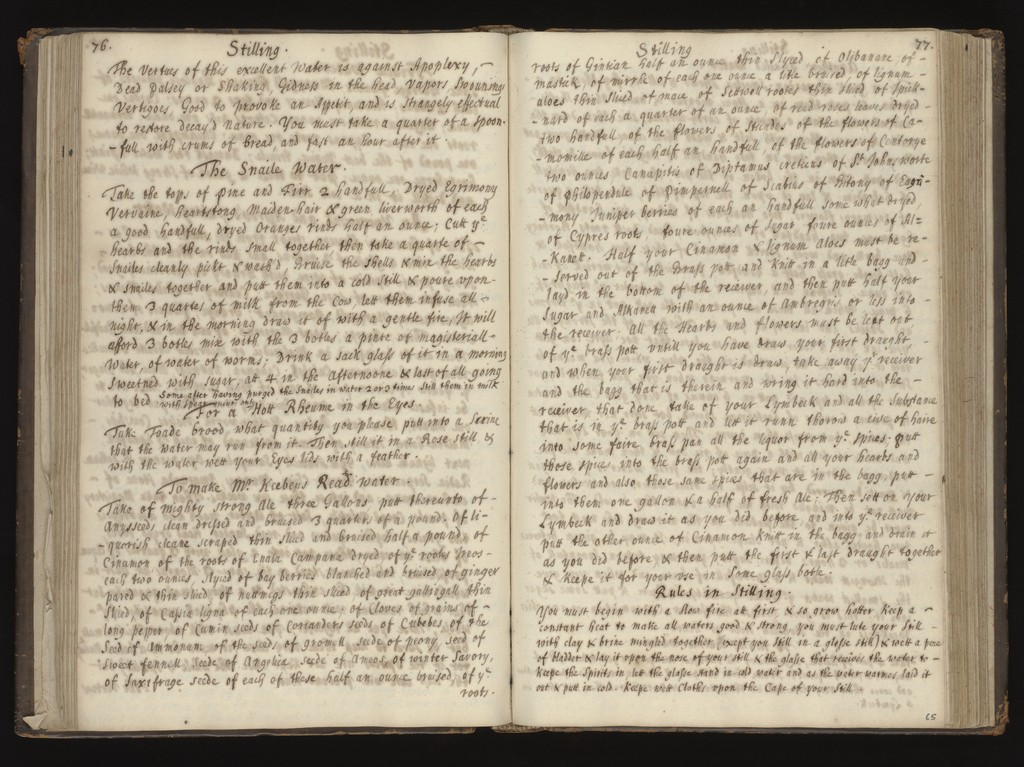 76.
Stilling.
The Vertues of this excellent Water is against Apoplexy,
Dead Palsey or Shaking, Gidness in the head, Vapors Swouning
Vertigoes, Good to provoke an Apetit, and is Strangely efectual
to restore decay'd Nature. You must take a quarter of a Spoon-
-full with crums of bread, and fast an hour after it
The Snaile Water.
Take the tops of Pine and Firr 2 handfull, Dryed Egrimony
Vervaine, Heartstong, Maiden-hair & green liverworth of each
a good handfull, dryed Oranges rinds half an ounce; Cutt ye
hearbs and the rinds Small together then take a quarte of
Snailes cleanly pickt & wash'd, Bruise the Shells & mix the hearbs
& Snailes together and putt them into a cold Still & poure upon-
them 3 quartes of milk from the Cow, lett them infuse all
night, & in the morning draw it of with a gentle fire, It will
afford 3 botles mix with the 3 botles a pinte of magisteriall
Water, of water of worms: Drink a Sack glass of it in a morning
Sweetned with Sugar, att 4 in the Afternoone & last of all going
to bed Some after having purged the Snailes in water 2 or 3 times Still them in milk
with Spear mint only
For a Hott Rheume in the Eyes.
Take Toade brood what quantity you please putt into a
that the water may run from it. Then Still it in a Rose Still &
with the water wett your Eyes lids with a feather.
To make Mrs Keebens Read water.
Take of mighty Strong Ale three Gallons putt thereunto of-
Anysseeds clean dressed and bruised 3 quarters of a pound. Of li-
-querish cleane scraped thin Sliced and bruised half a pound, of
Cinamon of the roots of Enula Campana dryed of ye roots Ireos-
each two ounces, Slyced of bay berries blanched and bruised, of ginger
pared & thin Sliced, of nuttmegs thin Sliced of great gallingall thin
Sliced, of Cassia ligna of each one ounce: of Cloves of grains of-
long pepper of Cumin Seeds of Corianders Seeds of Cubebes of the
Seed of Ammonum of the Seeds of gromell Seede of peony, Seed of
Sweet fennell, Seede of Angelica Seede of Aneos, of winter Savory,
of Saxifrage Seede of each of these half an ounce bruised, of ye
roots.
77.
Stilling
roots of Gintian half an ounce thin Slyced of Olibanane, of-
mastick, of mirrhe of each one ounce a litle bruised, of lignum-
aloes thin Sliced of mace, of Setwell rootes thin Sliced of Spick-
-nard of each a quarter of an ounce, of read roses leaves dryed-
two handfull of the flowers of Sticades of the flowers of Ca-
-momille of each half an handfull of the flowers of Centorye
two ounces Canapitis of Diptamus cretens of St Johns worte
of Philopendule of Pimpernell of Scabius of Bitony of Eagri-
-mony Juniper berries of each an handfull some what dryed
of Cypres roots foure ounces of Sugar foure ounces of Al-
-Kanet. Half your Cinamon & lignum Aloes must be re-
-served out of the Brass pott and Knitt in a litle bagg and
layd in the bottom of the receiver, and then putt half your
Sugar and Alkanea with an ounce of Ambregris or less into-
the receiver. all the Hearbs and flowers must be kept out
of ye brass pott untill you have draw your first draught,
and when your first draught is draw, take away ye receiver
and the bagg that is therein and wring it hard into the
receiver, that done, take of your Lymbeck and all the Substance
that is in ye brass pott and let it runn thorow a sive of haire
into some faire brass pan all the liquor from ye Spices. putt
those Spices into the brass pott again and all your hearbs and
flowers and also those same Spices that are in the bagg, putt-
into them one gallon & a half of fresh Ale; Then sett on your
Lymbeck and draw it as you did before and into ye receiver
putt the other ounce of Cinamon Knitt in the bagg and drain it
as you did before & then putt the first & last draught together
& Keepe it for your use in Some glass botle.
Rules in Stilling.
You must begin with a Slow fire att first & so grow hotter Keep a
constant heat to make all waters good & Strong, you must lute your Still
with clay & brine mingled together (except you Still in a glasse Still) & wett a peece
of bladder & lay it upon the nose of your Still & the glasse that receives the water to-
keepe the Spirits in lett the glasse stand in cold water and as the water warmes laid it
out & putt in cold. Keepe wett Cloths upon the Cape of your Still.
65